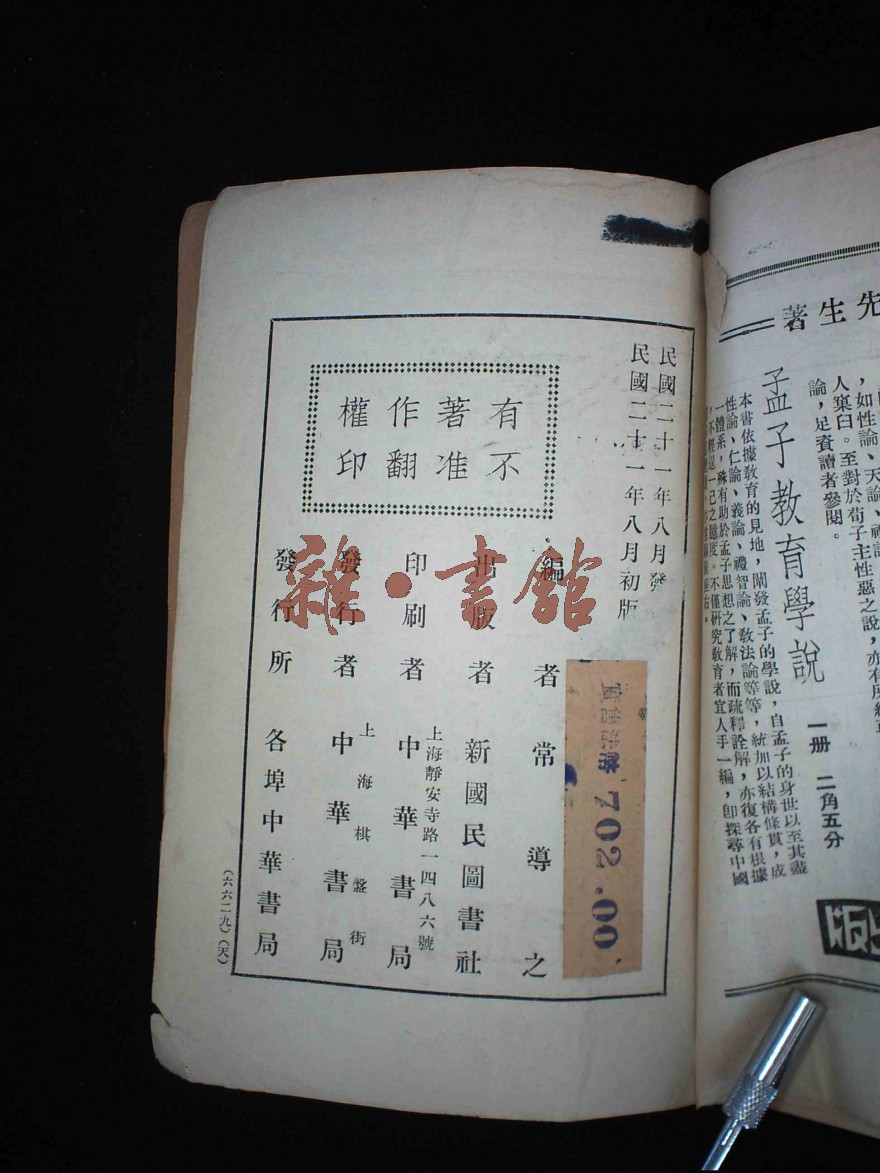 先生著
，如性論、天論、
人窠臼。至對於荀子主性惡之說，亦有所
論，足資讀者參閱。
孟子教育學說
一册 二角五分
本書依據教育的見地，闡發孟子的學說，自孟子的身世以至其盡
性論、仁論、義論、禮智論、教法論等等，統加以結構條貫，成
一體系，殊有助於孟子思想之了解，而疏釋詮解，亦復各有根據
，不僅研究教育者宜人手一編，卽探尋中國
版
民國二十一年八月發
民國二十一年八月初版
有不
著准
作翻
權印
702.00
編者 常導之
出版者 新國民圖書社
印刷者 上海靜安寺路一四八六號 中華書局
發行者 上海棋盤街 中華書局
發行所 各埠中華書局
(六六二九)(天)
雜·書館